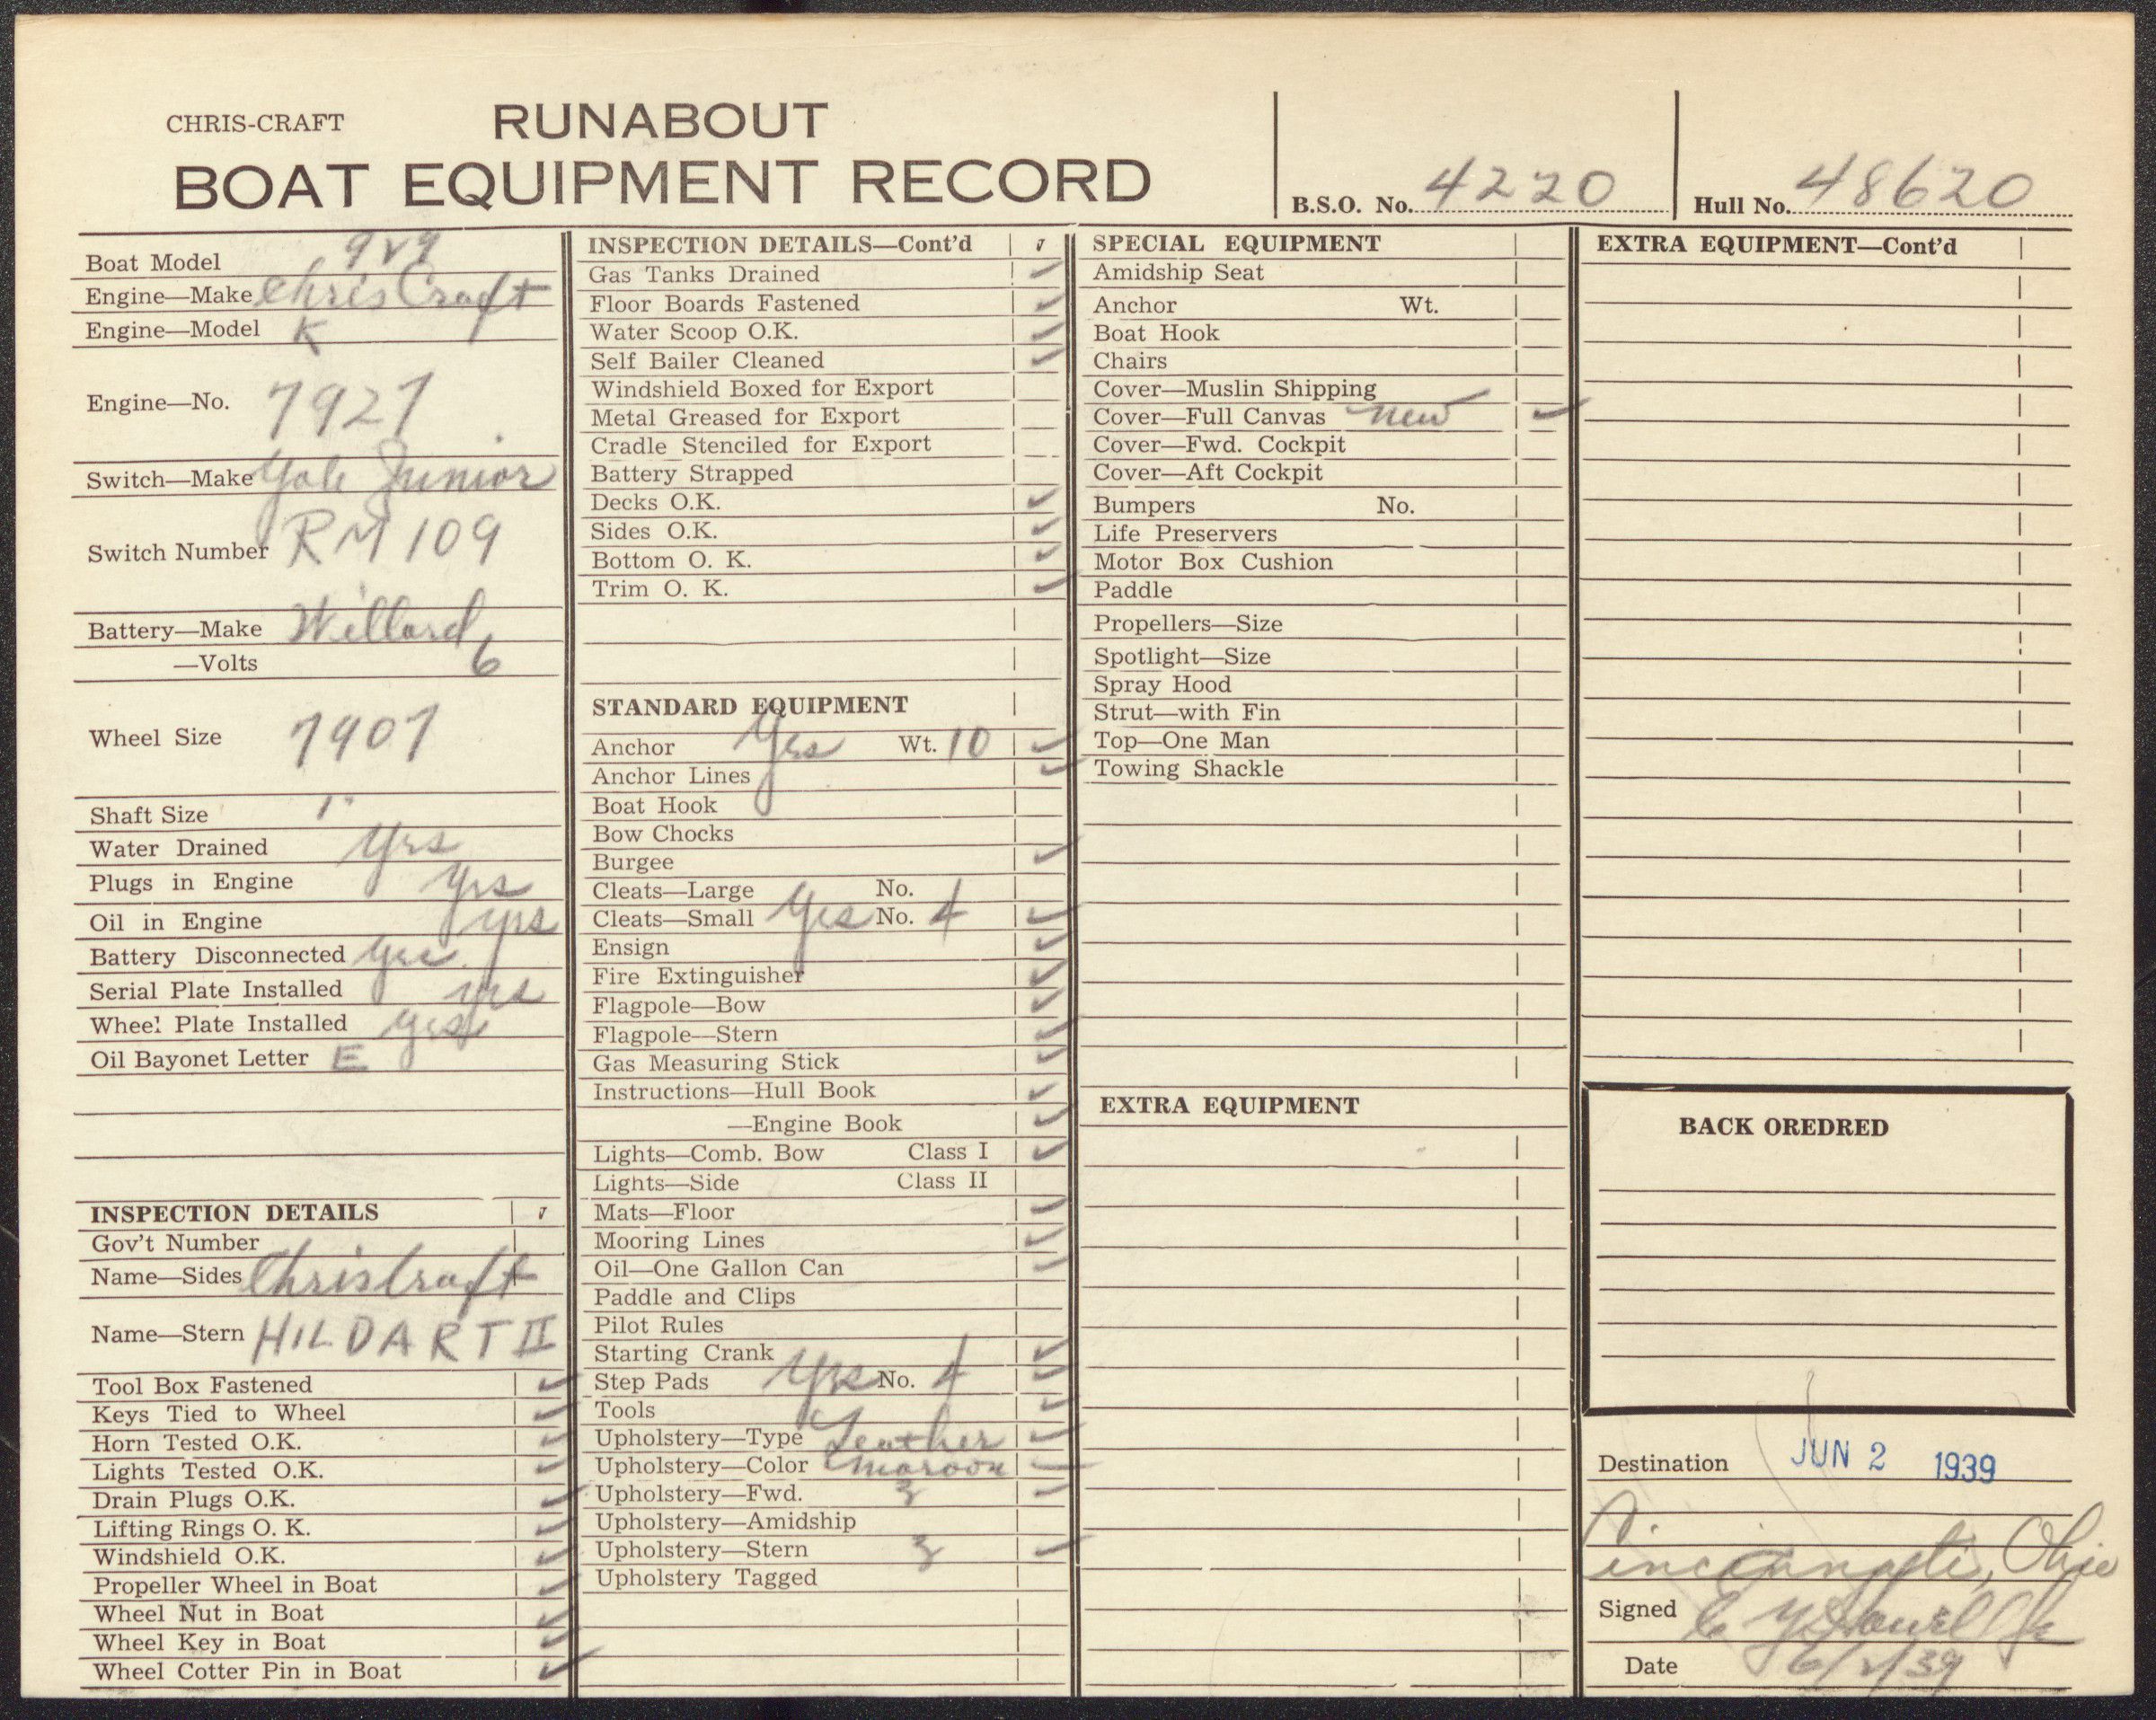 CHRIS-CRAFT RUNABOUT
BOAT EQUIPMENT RECORD
B.S.O. No. 4220
Hull No. 48620
Boat Model 929
Engine—Make Chris Craft
Engine—Model K
Engine—No. 7927
Switch—Make Yale Junior
Switch Number RM 109
Battery—Make Willard
—Volts 6
Wheel Size 7907
Shaft Size 1"
Water Drained Yes
Plugs in Engine yes
Oil in Engine yes
Battery Disconnected yes
Serial Plate Installed yes
Wheel Plate Installed yes
Oil Bayonet Letter E
INSPECTION DETAILS √
Gov't Number
Name—Sides Chris Craft
Name—Stern HILDART II
Tool Box Fastened ✓
Keys Tied to Wheel ✓
Horn Tested O.K. ✓
Lights Tested O.K. ✓
Drain Plugs O.K. ✓
Lifting Rings O. K. ✓
Windshield O.K. ✓
Propeller Wheel in Boat ✓
Wheel Nut in Boat ✓
Wheel Key in Boat ✓
Wheel Cotter Pin in Boat ✓
INSPECTION DETAILS—Cont'd √
Gas Tanks Drained ✓
Floor Boards Fastened ✓
Water Scoop O.K. ✓
Self Bailer Cleaned ✓
Windshield Boxed for Export
Metal Greased for Export
Cradle Stenciled for Export
Battery Strapped
Decks O.K. ✓
Sides O.K. ✓
Bottom O. K. ✓
Trim O. K. ✓
STANDARD EQUIPMENT
Anchor Yes Wt. 10 ✓
Anchor Lines ✓
Boat Hook
Bow Chocks
Burgee ✓
Cleats—Large No.
Cleats—Small Yes No. 4 ✓
Ensign ✓
Fire Extinguisher ✓
Flagpole—Bow ✓
Flagpole—Stern ✓
Gas Measuring Stick ✓
Instructions—Hull Book ✓
—Engine Book ✓
Lights—Comb. Bow Class I ✓
Lights—Side Class II
Mats—Floor ✓
Mooring Lines ✓
Oil—One Gallon Can ✓
Paddle and Clips
Pilot Rules
Starting Crank ✓
Step Pads Yes No. 4 ✓
Tools ✓
Upholstery—Type Leather ✓
Upholstery—Color maroon ✓
Upholstery—Fwd. 3 ✓
Upholstery—Amidship
Upholstery—Stern 3 ✓
Upholstery Tagged
SPECIAL EQUIPMENT
Amidship Seat
Anchor Wt.
Boat Hook
Chairs
Cover—Muslin Shipping
Cover—Full Canvas new ✓
Cover—Fwd. Cockpit
Cover—Aft Cockpit
Bumpers No.
Life Preservers
Motor Box Cushion
Paddle
Propellers—Size
Spotlight—Size
Spray Hood
Strut—with Fin
Top—One Man
Towing Shackle
EXTRA EQUIPMENT
EXTRA EQUIPMENT—Cont'd
BACK OREDRED
Destination JUN 2 1939
Cincinnati, Ohio
Signed
Date 6/2/39